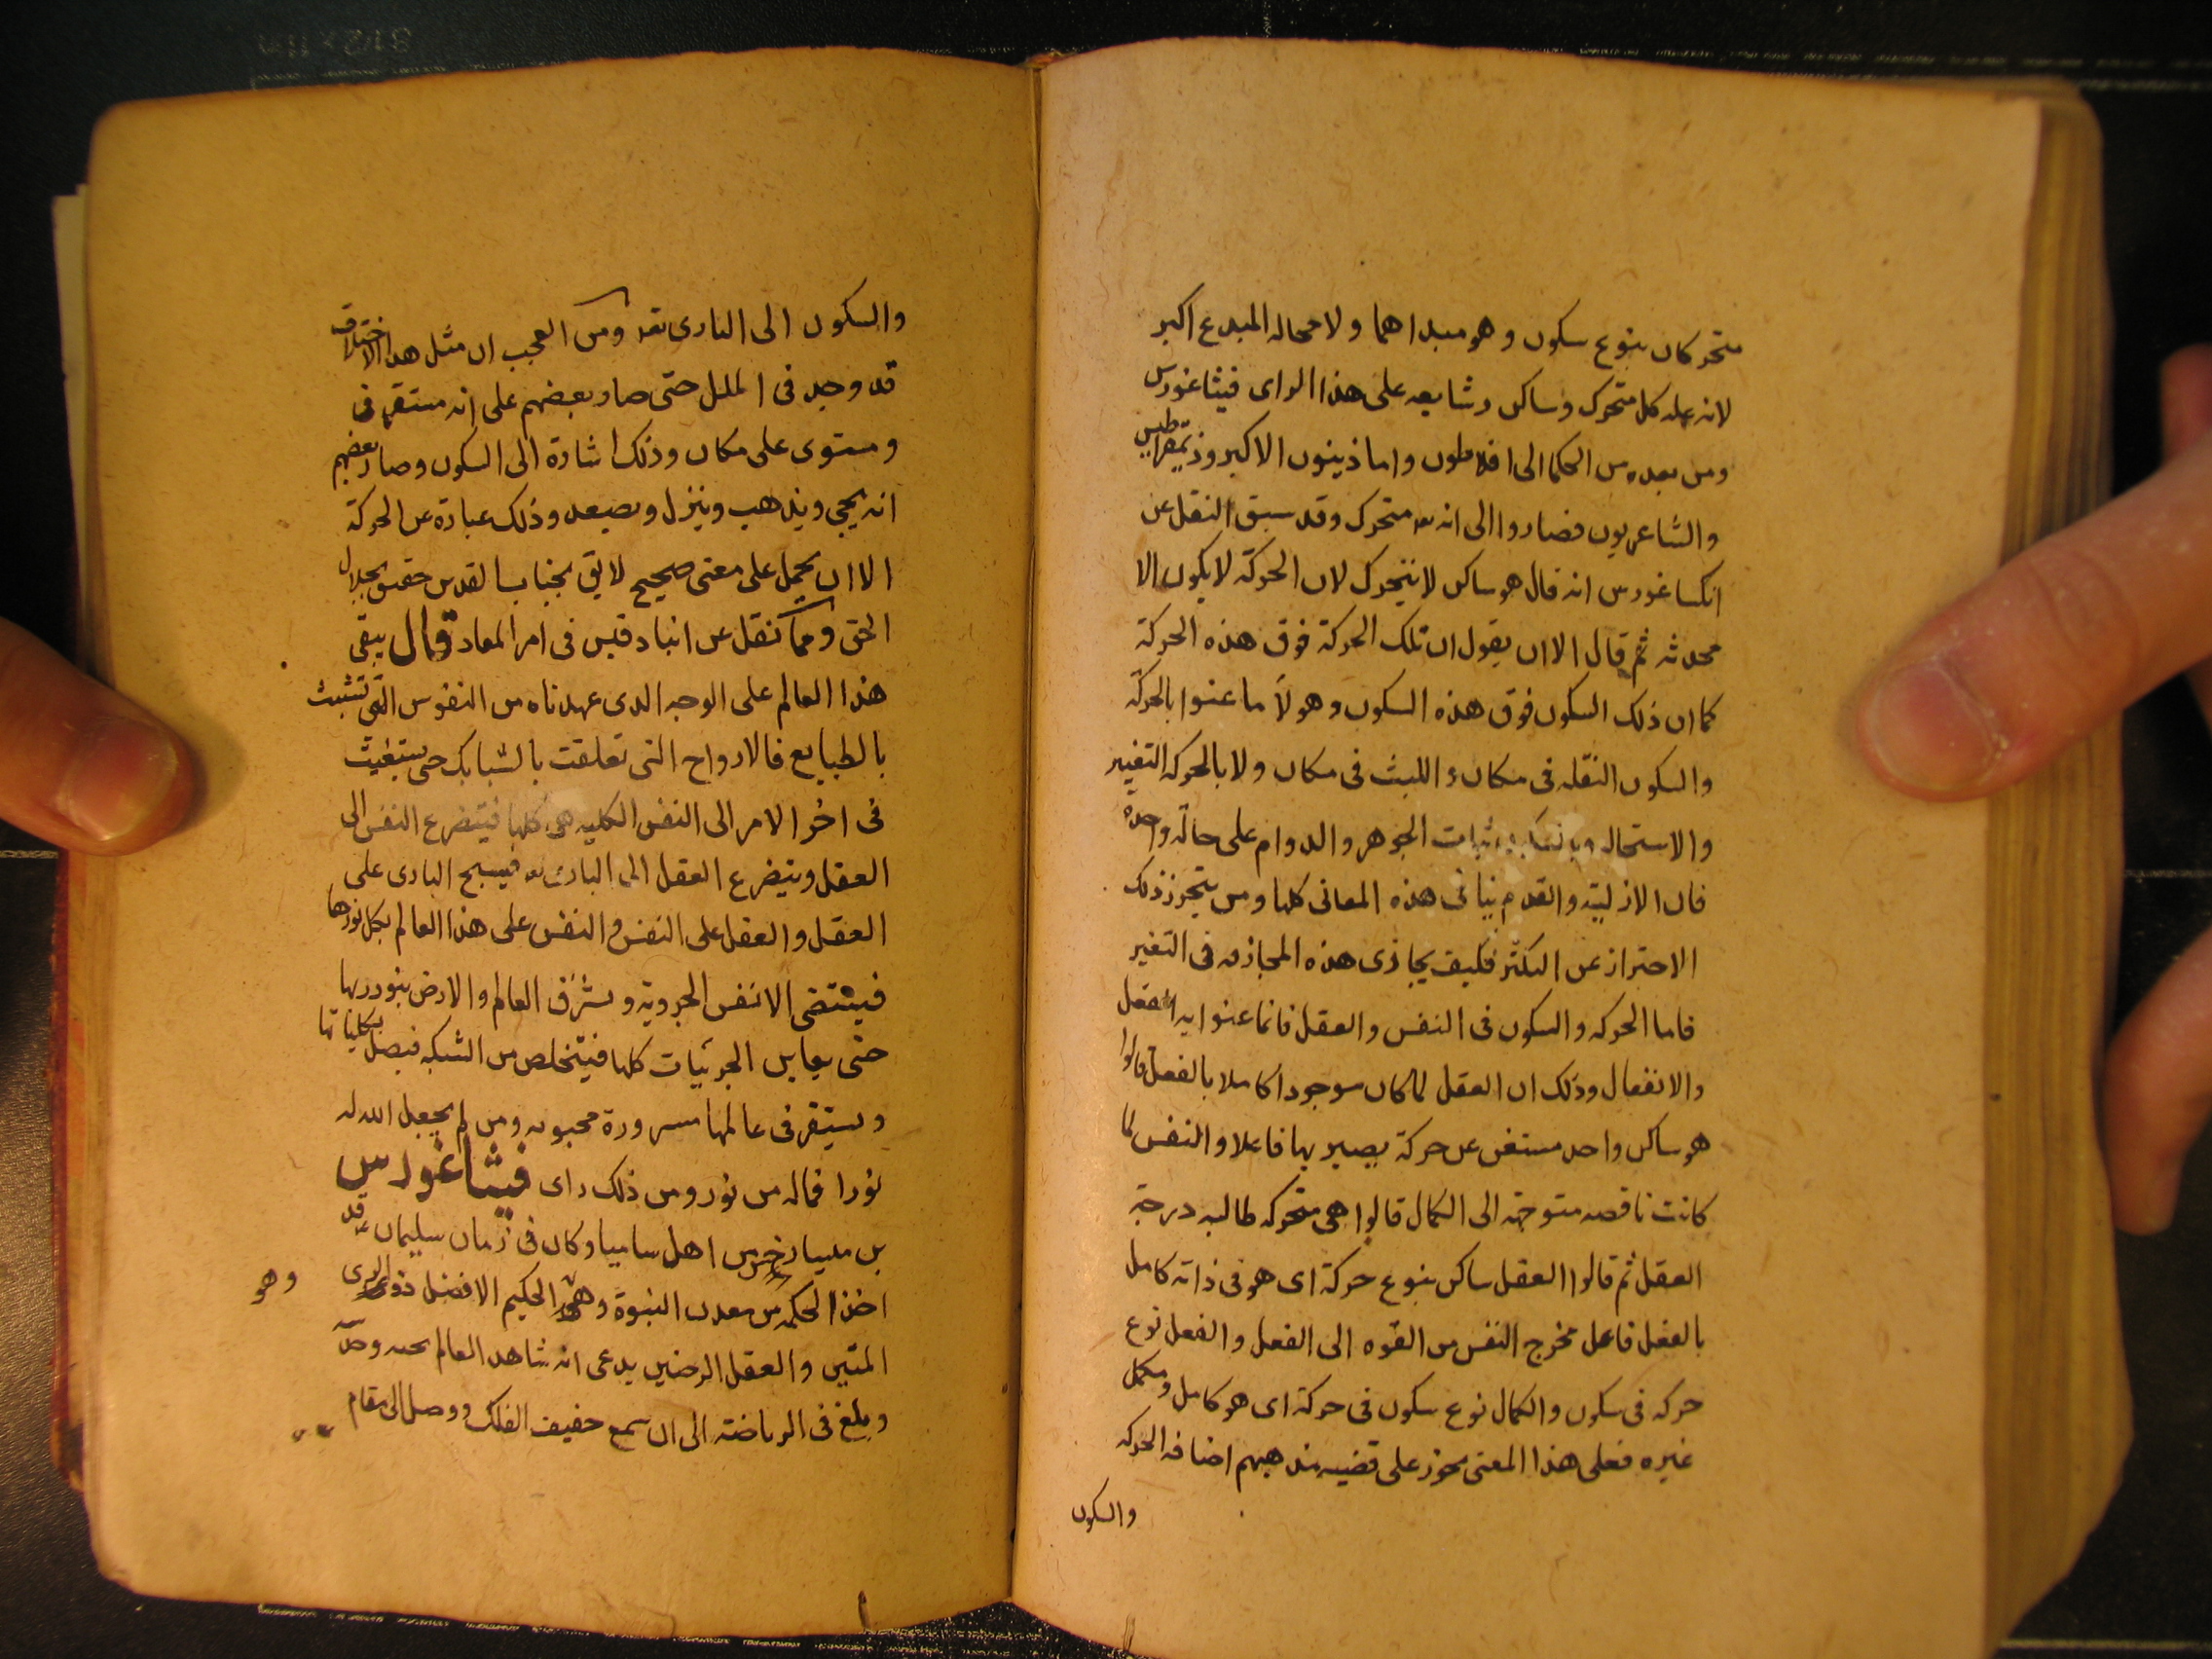 متحركان بنوع سكون وهو مبداهما ولا محاله المبدع اكبر
لانه عله كل متحرك وساكن وشايعه على هذا الراى فيثاغورس
ومن بعده من الحكما الى افلاطون واما ذينون الاكبر وذيمقراطيس
والشاعريون فصاروا الى انه تعه متحرك وقد سبق النقل عن
انكساغورس انه قال هو ساكن لا يتحرك لان الحركة لا يكون الا
محدثه ثم قال الا ان يقول ان تلك الحركة فوق هذه الحركة
كما ان ذلك السكون فوق هذه السكون وهولآ ما عنوا بالحركة
والسكون النقله فى مكان و اللبث فى مكان ولا بالحركه التغيير
والاستحاله ثبات الجوهر والدوام على حالة واحده
فان الازلية والقدم ينافى هذه المعانى كلها ومن يتجوز ذلك
الاحتراز عن التكثر فكيف يجازى هذه المجازفه فى التغير
فاما الحركه والسكون فى النفس والعقل فانما عنوا به الفعل
والانفعال وذلك ان العقل لما كان موجودا كاملا بالفعل قالوا
هو ساكن واحد مستغن عن حركة يصير بها فاعلا والنفس لما
كانت ناقصه متوجهة الى الكمال قالوا هى متحركه طالبه درجة
العقل ثم قالوا العقل ساكن بنوع حركة اى هو فى ذاته كامل
بالفعل فاعل مخرج النفس من القوه الى الفعل والفعل نوع
حركه فى سكون والكمال نوع سكون فى حركة اى هو كامل ومكمل
غيره فعلى هذا المعنى يجوز على قضيه مذهبهم اضافه الحركه
والسكون
والسكون الى البارى تعه ومن العجب ان مثل هذا الاختلاف
قد وجد فى الملل حتى صار بعضهم على انه مستقر فى
ومستوى على مكان وذلك اشارة الى السكون وصار بعضهم
انه يجى ويذهب وينزل ويصعد وذلك عبارة عن الحركة
الا ان يحمل على معنى صحيح لايق بجناب القدس حقيق بجلال
الحق ومما نقل عن انبادقلس فى امر المعاد قال يبقى
هذا العالم على الوجه الذى عهدناه من النفوس التى تشبثت
بالطبايع فالارواح التى تعلقت بالشبابك حتى يستغيث
فى اخر الامر الى النفس الكليه هى كلها فيتضرع النفس الى
العقل ويتضرع العقل الى البارى تعه فيسيح البارى على
العقل والعقل على النفس والنفس على هذا العالم بكل نورها
فيستضى الانفس الجزويه ويشرق العالم والارض بنور ربها
حتى يعاين الجزئيات كلها فيتخلص من الشبكه فيصل بكلياتها
ويستقر فى عالمها مسرورة محبوره ومن لم يجعل الله له
نورا فماله من نور ومن ذلك راى فيثاغورس
بن منسارخس من اهل ساميا وكان فى زمان سليمان قد
اخذ الحكمه من معدن النبوة وهو الحكيم الافضل ذو الراى
وهو
المتين والعقل الرصين يدعى انه شاهد العالم بحسه وحدسه
وبلغ فى الرياضه الى ان سمع حفيف الفلك ووصل الى مقام